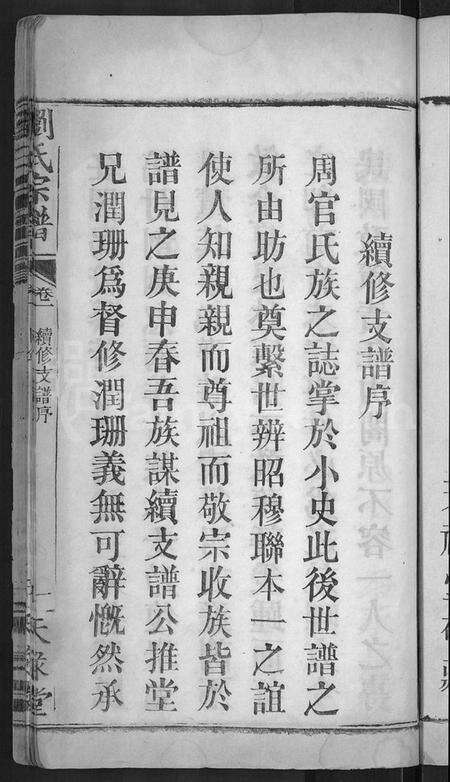 續修支譜序
周官氏族之誌掌於小史此後世譜之
所由助也奠繫世辨昭穆聯本一之誼
使人知親親而尊祖而敬宗收族皆於
譜見之庚申春吾族謀續支譜公推堂
兄潤珊爲督修潤珊義無可辭慨然承
劉氏宗譜
卷一
續修支譜序